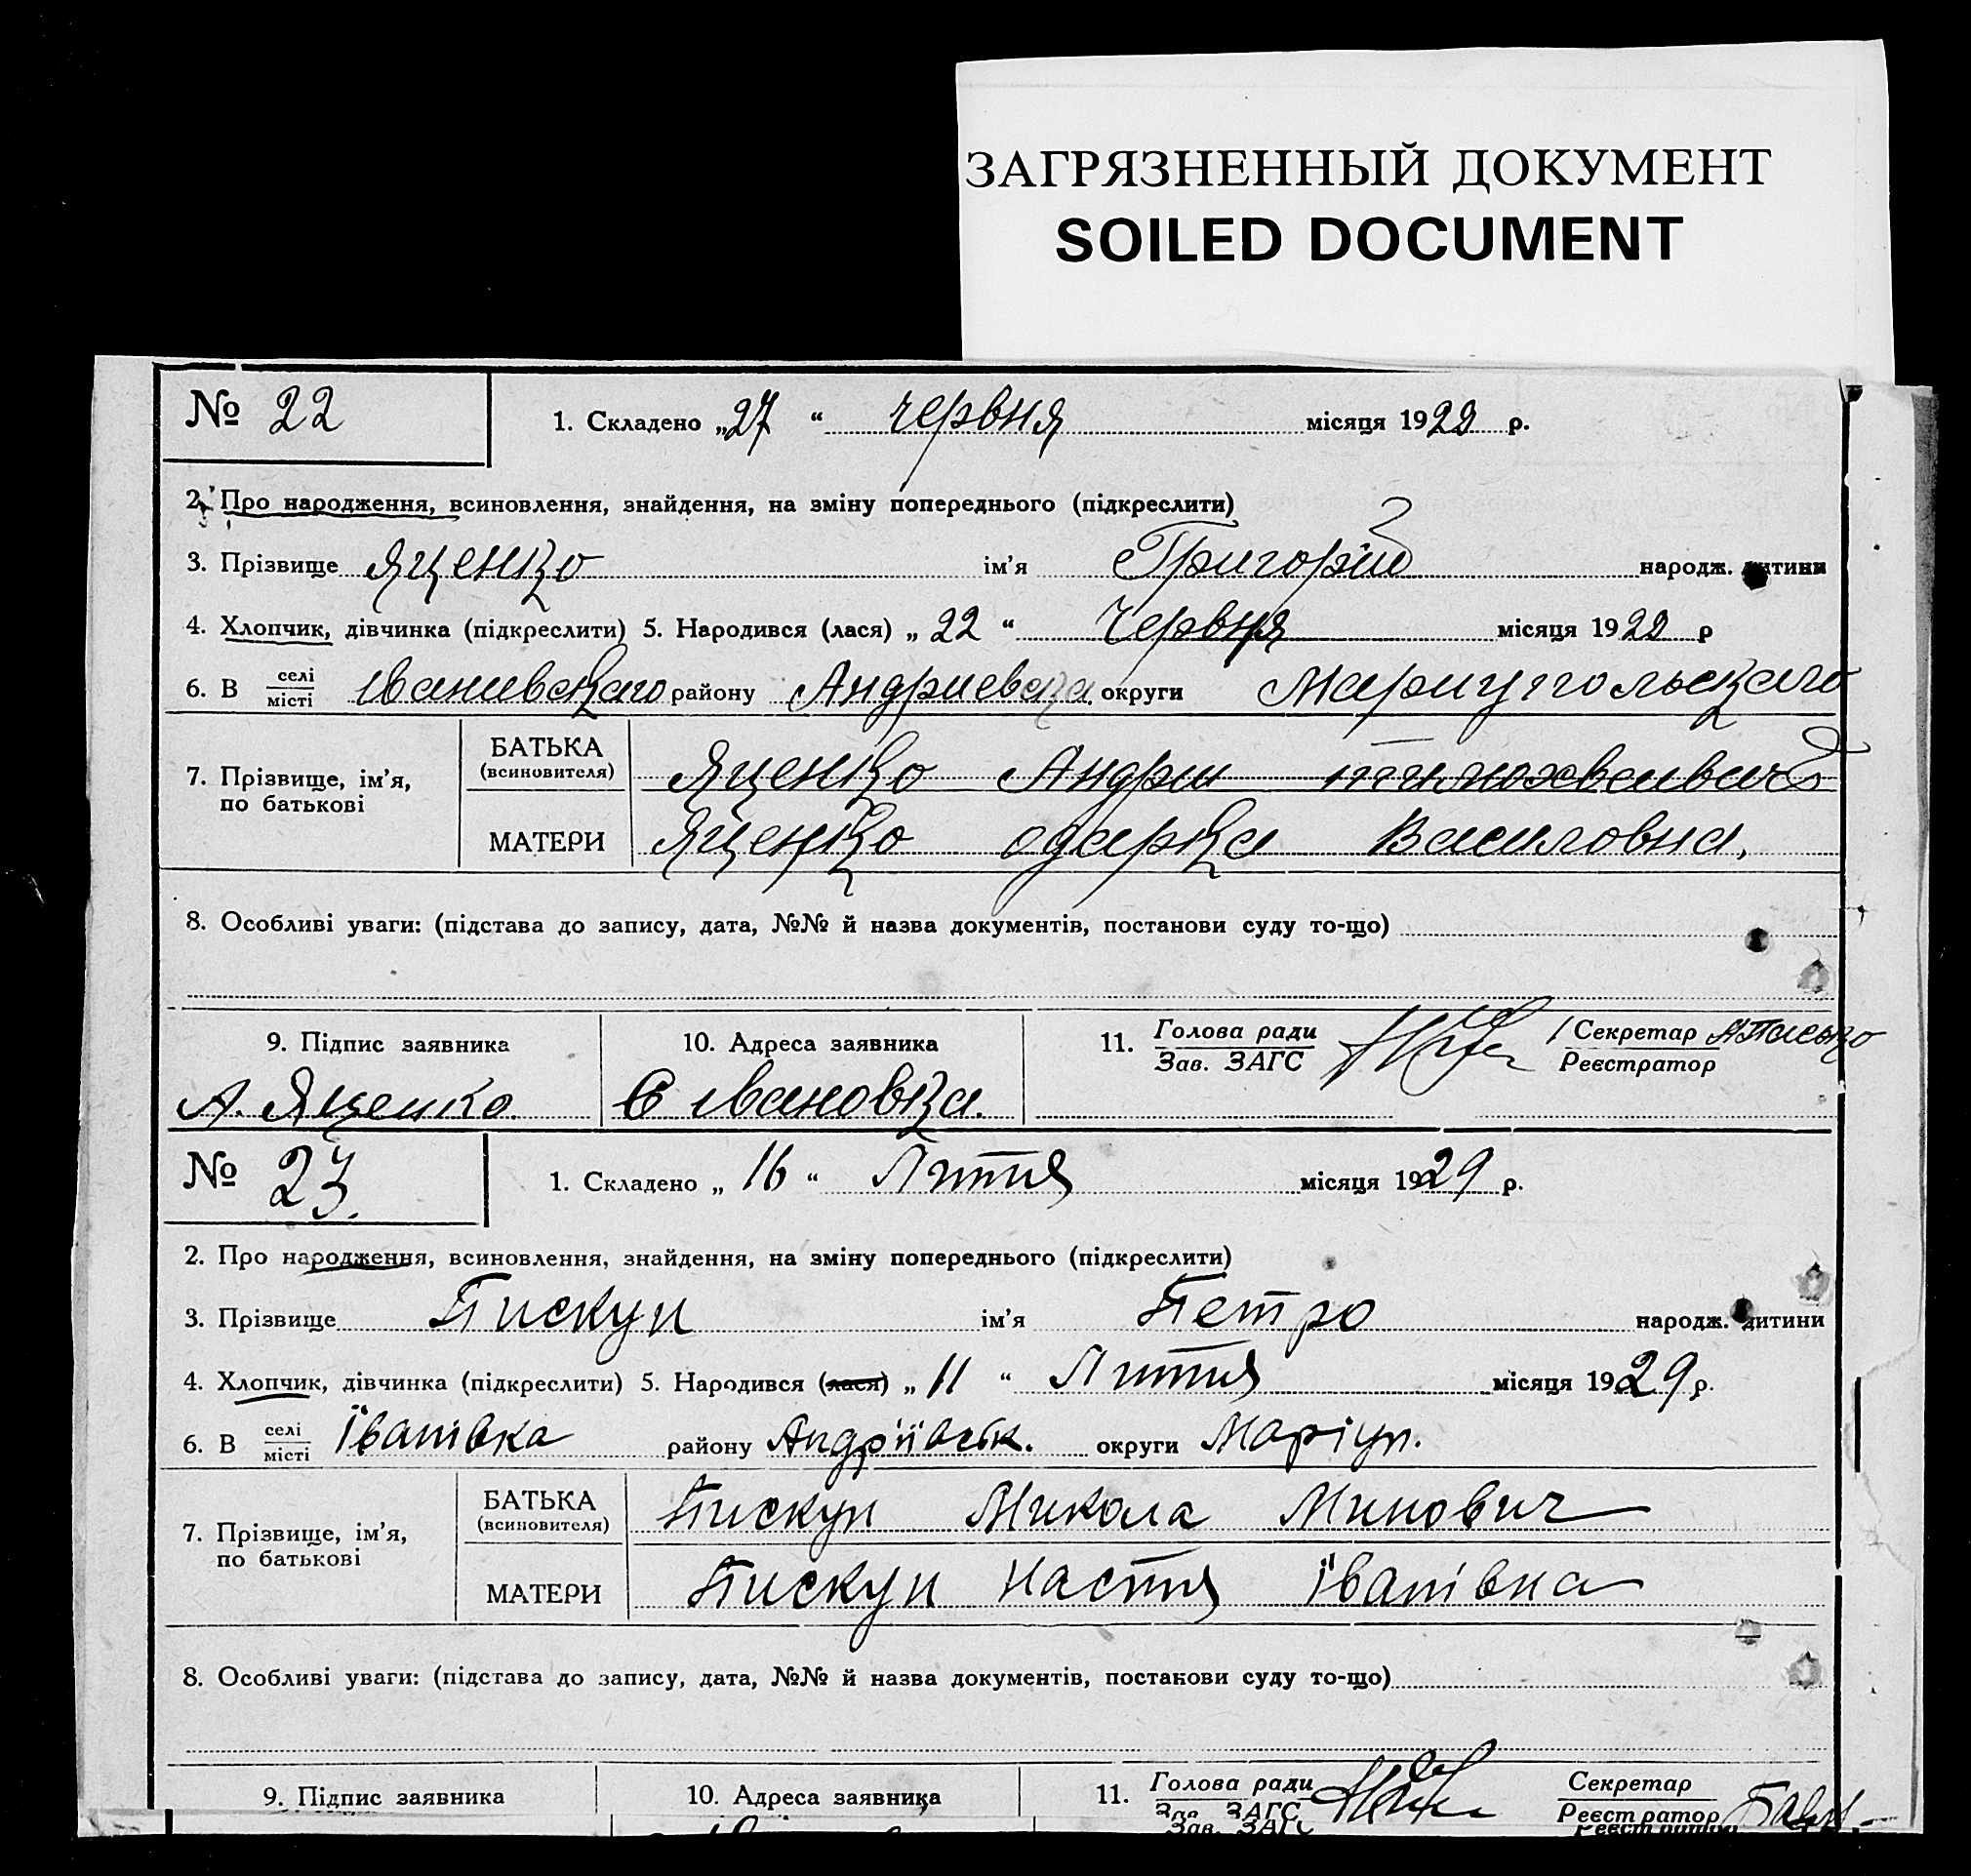 ЗАГРЯЗНЕННЫЙ ДОКУМЕНТ
SOILED DOCUMENT
№ 22
1. Складено „27“ червня місяця 1928 р.
2. Про народження, всиновлення, знайдення, на зміну попереднього (підкреслити)
3. Прізвище Яценко ім'я Григорій народж. дитини
4. Хлопчик, дівчинка (підкреслити) 5. Народився (лася) „22“ Червня місяця 1928 р
6. В селі місті Іванивскаго району Андриевска округи Мариупольскаго
7. Прізвище, ім'я, по батькові
БАТЬКА (всиновителя) Яценко Андри
МАТЕРИ Яценко одарка Василовна,
8. Особливі уваги: (підстава до запису, дата, №№ й назва документів, постанови суду то-що)
9. Підпис заявника
А. Яценко
10. Адреса заявника
С Ивановка.
11. Голова ради
Зав. ЗАГС
Секретар
Реєстратор
№ 23.
1. Складено „16“ Лютня місяця 1929 р.
2. Про народження, всиновлення, знайдення, на зміну попереднього (підкреслити)
3. Прізвище Пискун ім'я Петро народж. дитини
4. Хлопчик, дівчинка (підкреслити) 5. Народився (лася) „11“ Лютня місяця 1929 р.
6. В селі місті Іванівка району Андріївськ. округи Маріуп.
7. Прізвище, ім'я, по батькові
БАТЬКА (всиновителя) Пискун Микола Минович
МАТЕРИ Пискун Настя Іванівна
8. Особливі уваги: (підстава до запису, дата, №№ й назва документів, постанови суду то-що)
9. Підпис заявника
10. Адреса заявника
11. Голова ради
Зав. ЗАГС
Секретар
Реєстратор